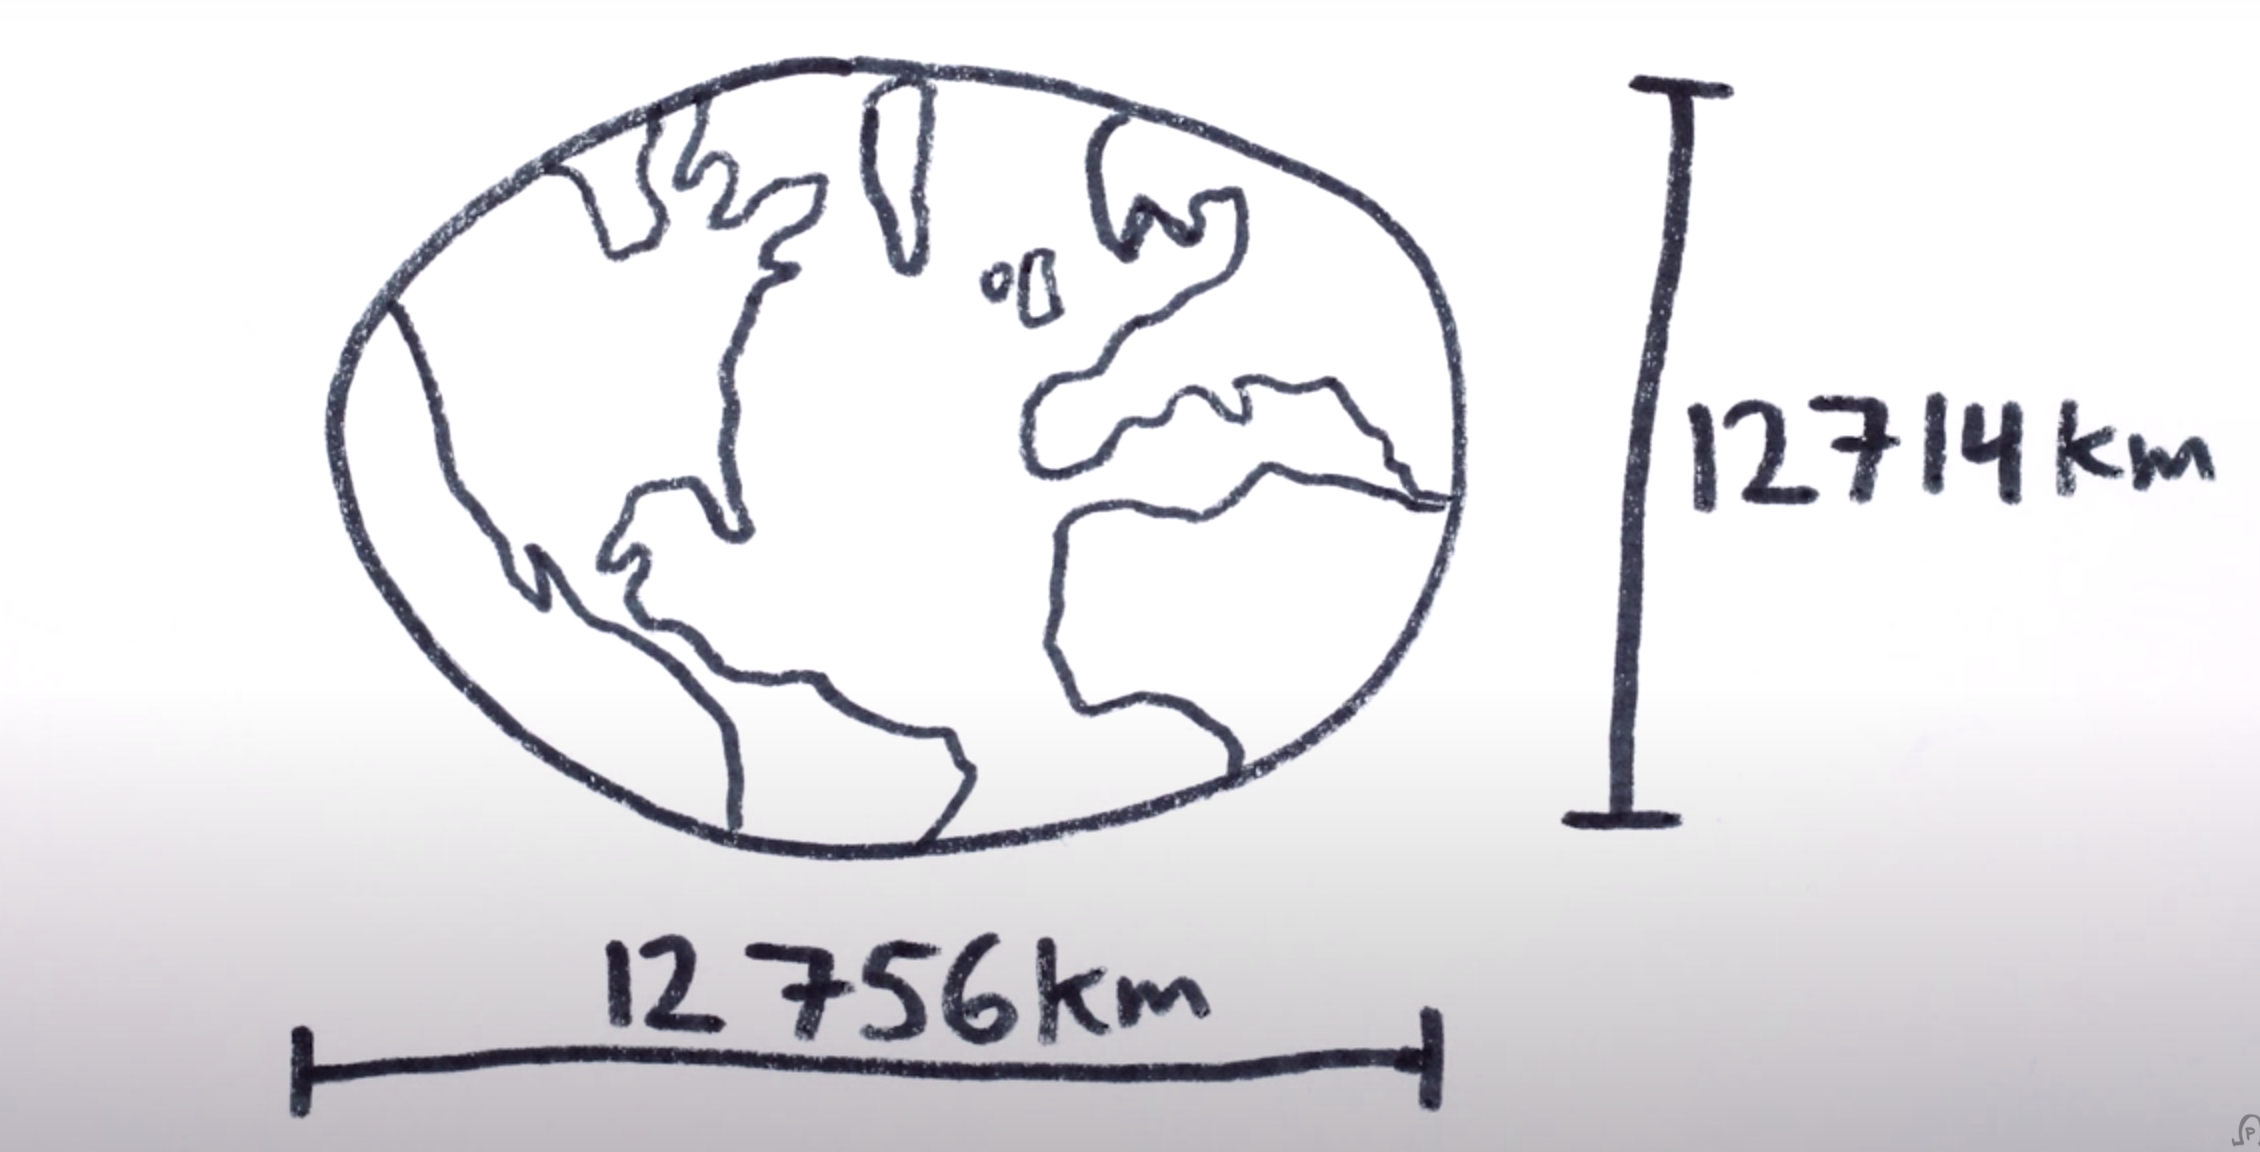 12714 km
12 756 km